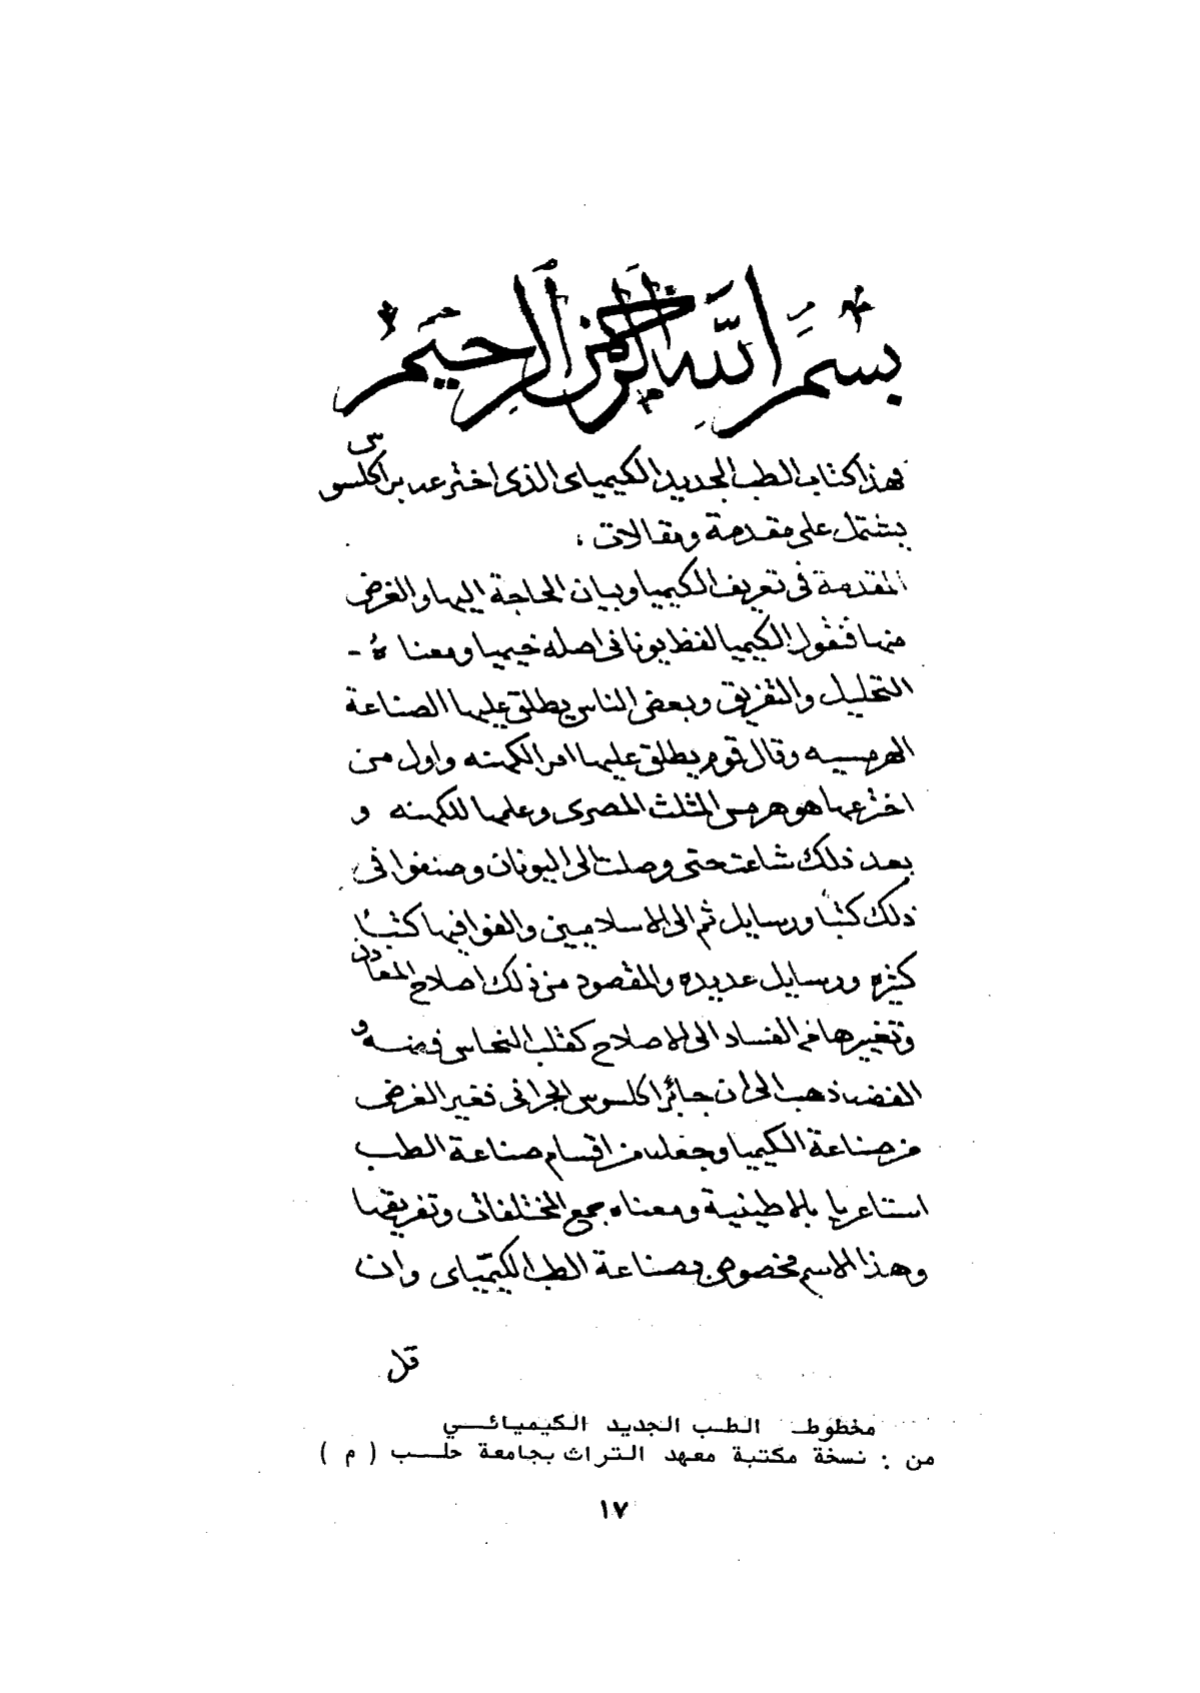 بسم الله الرحمن الرحيم
فهذا كتاب الطب الجديد الكيمياى الذى اخترعه براكلسوس
يشتمل على مقدمة ومقالات ،
المقدمة فى تعريف الكيميا وبيان الحاجة اليها والغرض
منها فنقول الكيميا لفظ يونانى اصله خيميا ومعناه -
التحليل والتفريق وبعض الناس يطلق عليها الصناعة
الهرمسيه وقال قوم يطلق عليها امر الكهنه واول من
اخترعها هو هرمس المثلث المصرى وعلمها للكهنه و
بعد ذلك شاعت حتى وصلت الى اليونان وصنفوا فى
ذلك كتبًا ورسايل ثم الى الاسلاميين والفوا فيها كتبًا
كثيره ورسايل عديده والمقصود من ذلك اصلاح المعادن
وتغيرها من الفساد الى الاصلاح كقلب النحاس فضه و
الفضه ذهب الى ان جا براكلسوس الجرمانى فغير الغرض
من صناعة الكيميا وجعله من اقسام صناعة الطب
استاعريا بالاطينية ومعناه جمع المختلفات وتفريقها
وهذا الاسم مخصوص بصناعة الطب الكيمياى وان
قل
مخطوط الطب الجديد الكيميائي
من : نسخة مكتبة معهد التراث بجامعة حلب ( م )
١٧